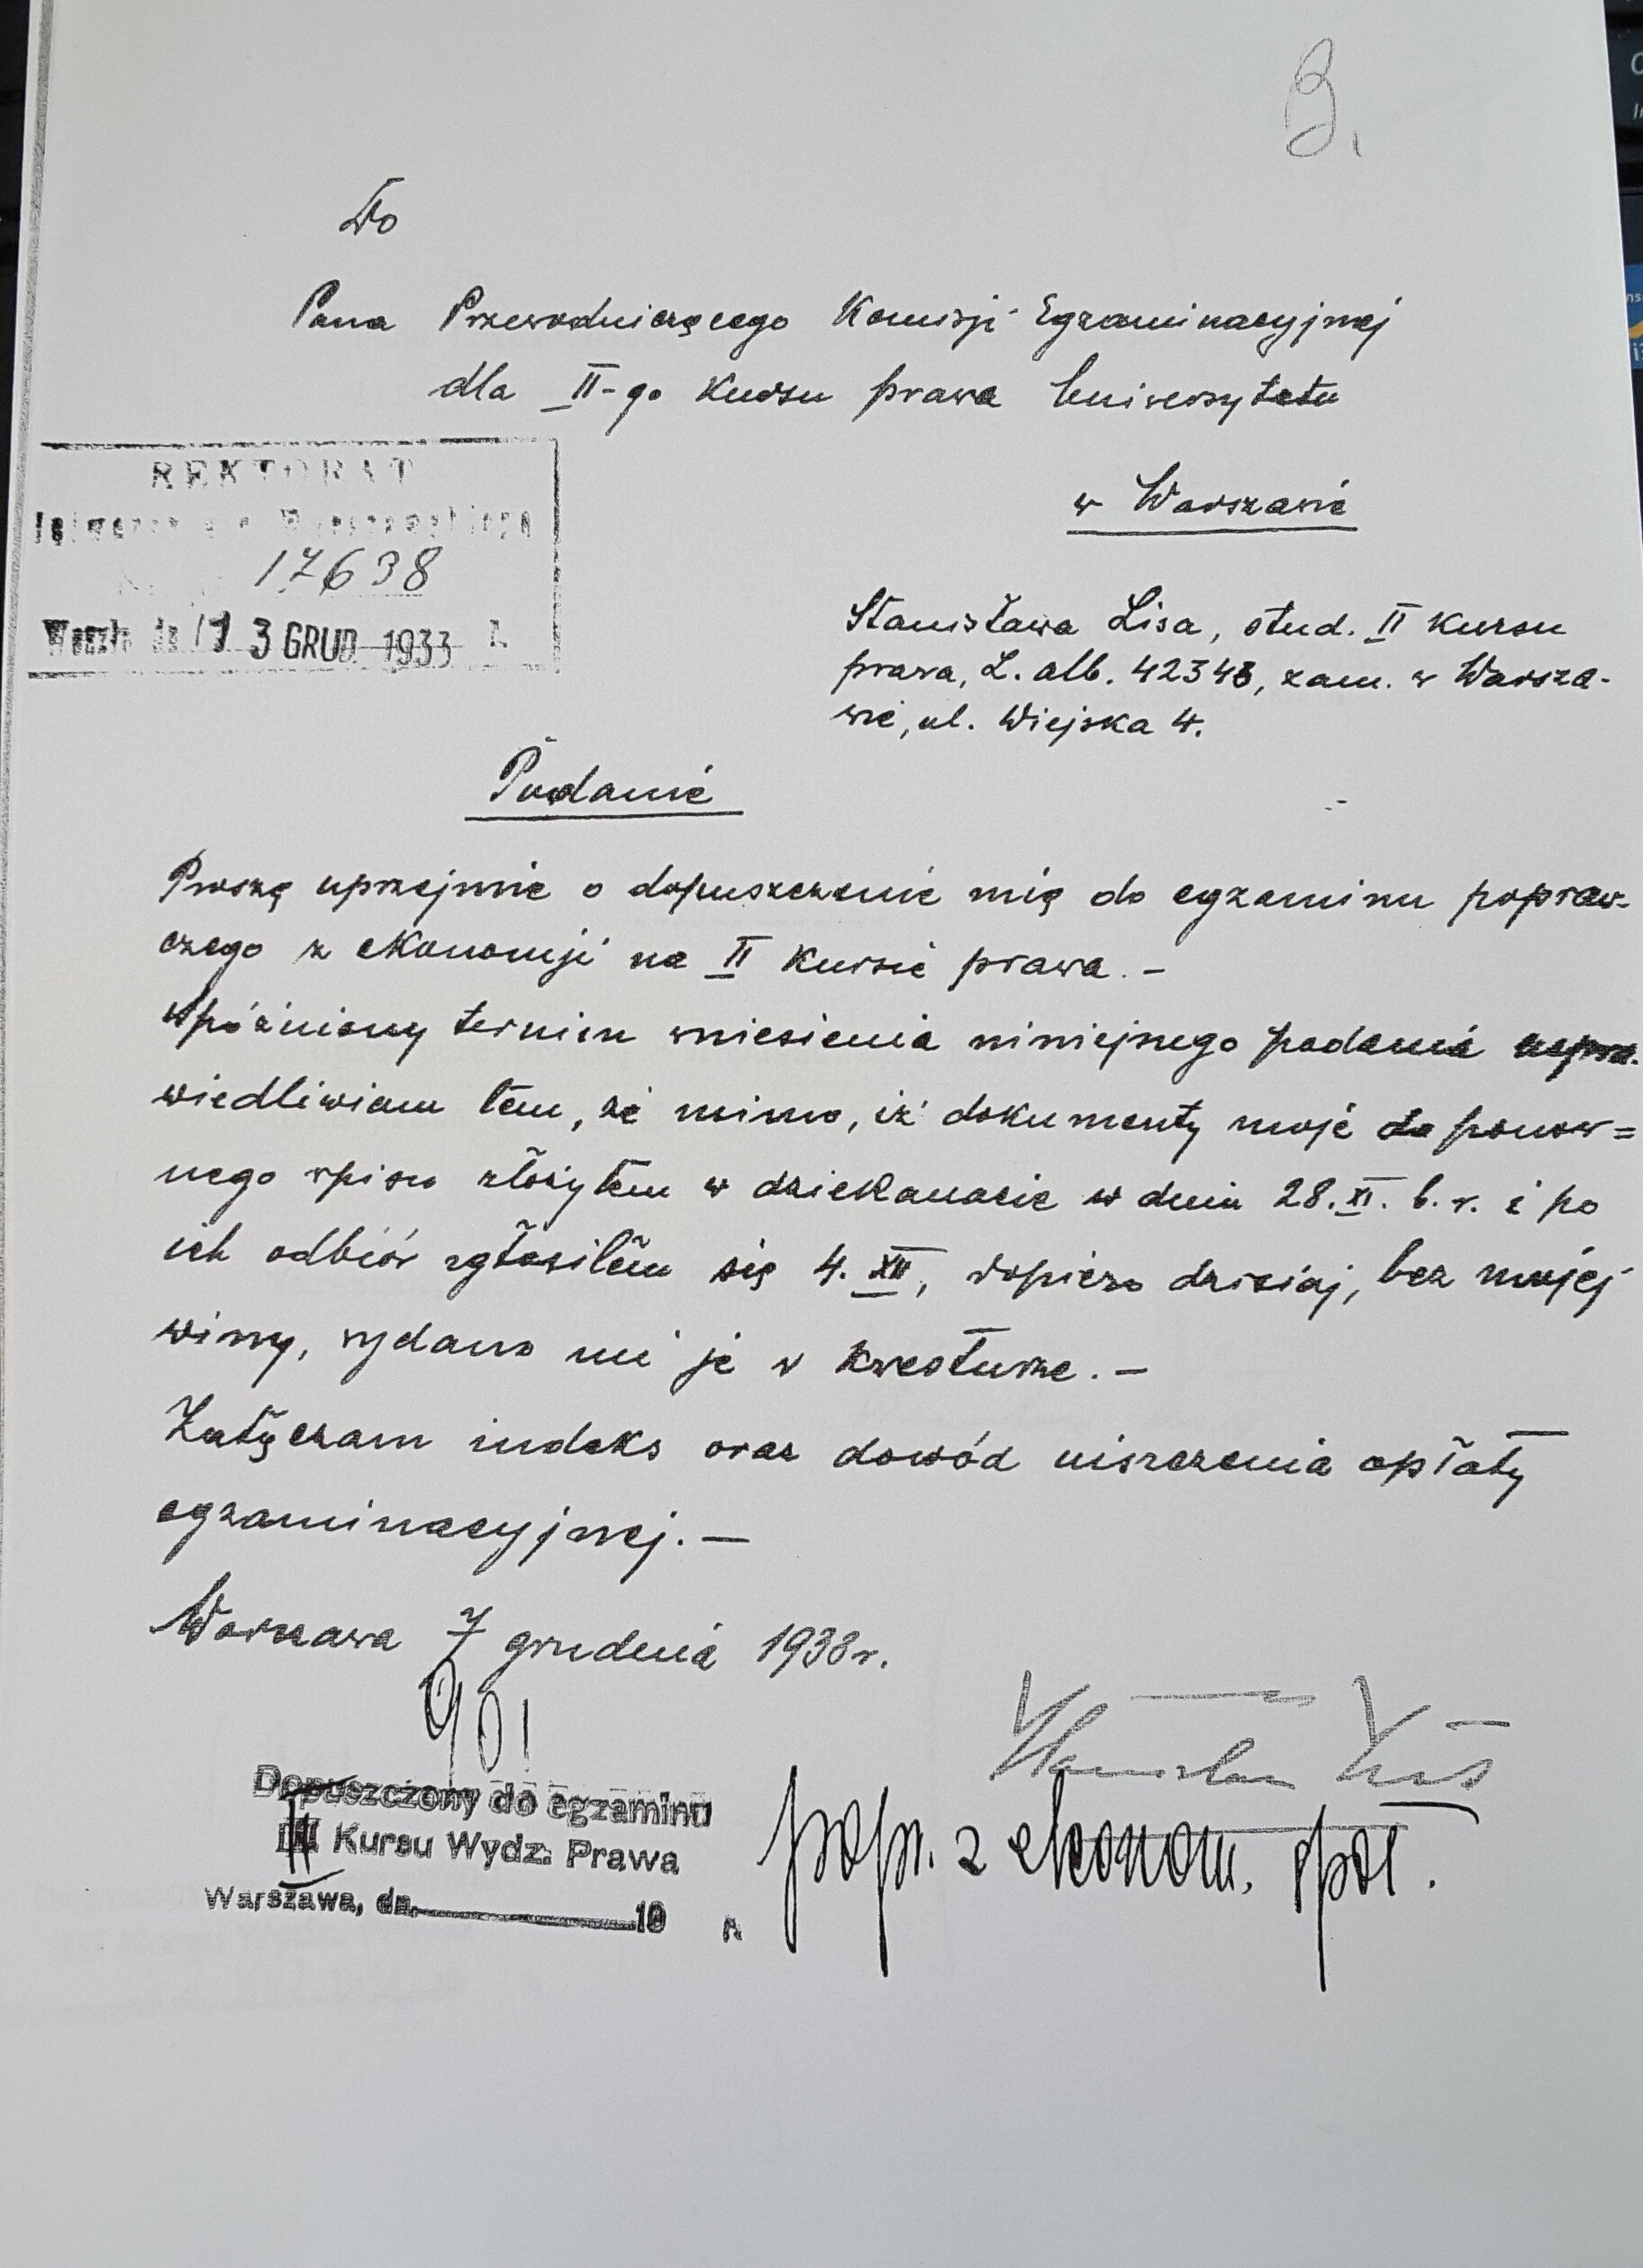 3.
Do
Pana Przewodniczącego Komisji Egzaminacyjnej
dla II-go Kursu prawa Uniwersytetu
w Warszawie
REKTORAT
Uniwersytetu Warszawskiego
17638
Weszło dn. 13 GRUD 1933 r.
Stanisława Lisa, stud. II kursu
prawa, L. alb. 42348, zam. w Warsza-
wie, ul. Wiejska 4.
Podanie
Proszę uprzejmie o dopuszczenie mię do egzaminu popraw-
czego z ekonomji na II Kursie prawa. –
Spóźniony termin wniesienia niniejszego podania uspra-
wiedliwiam tem, że mimo, iż dokumenty moje do ponow=
nego wpisu złożyłem w dziekanacie w dniu 28. XI. b. r. i po
ich odbiór zgłosiłem się 4. XII, dopiero dzisiaj, bez mojej
winy, wydano mi je w kwesturze. –
Załączam indeks oraz dowód uiszczenia opłaty
egzaminacyjnej. –
Warszawa 7 grudnia 1933 r.
Stanisław Lis
Dopuszczony do egzaminu
II Kursu Wydz. Prawa
popr. z ekonom. pol.
Warszawa, dn. 19 r.